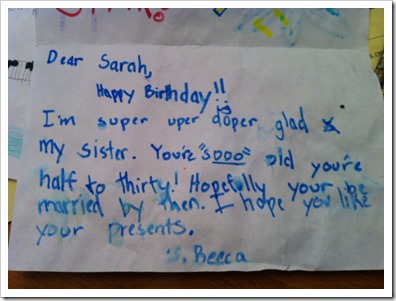 Dear Sarah,
Happy Birthday!!
I'm super uper doper glad
my sister. You're "sooo" old you're
half to thirty! Hopefully your be
married by then. I hope you like
your presents.
Becca